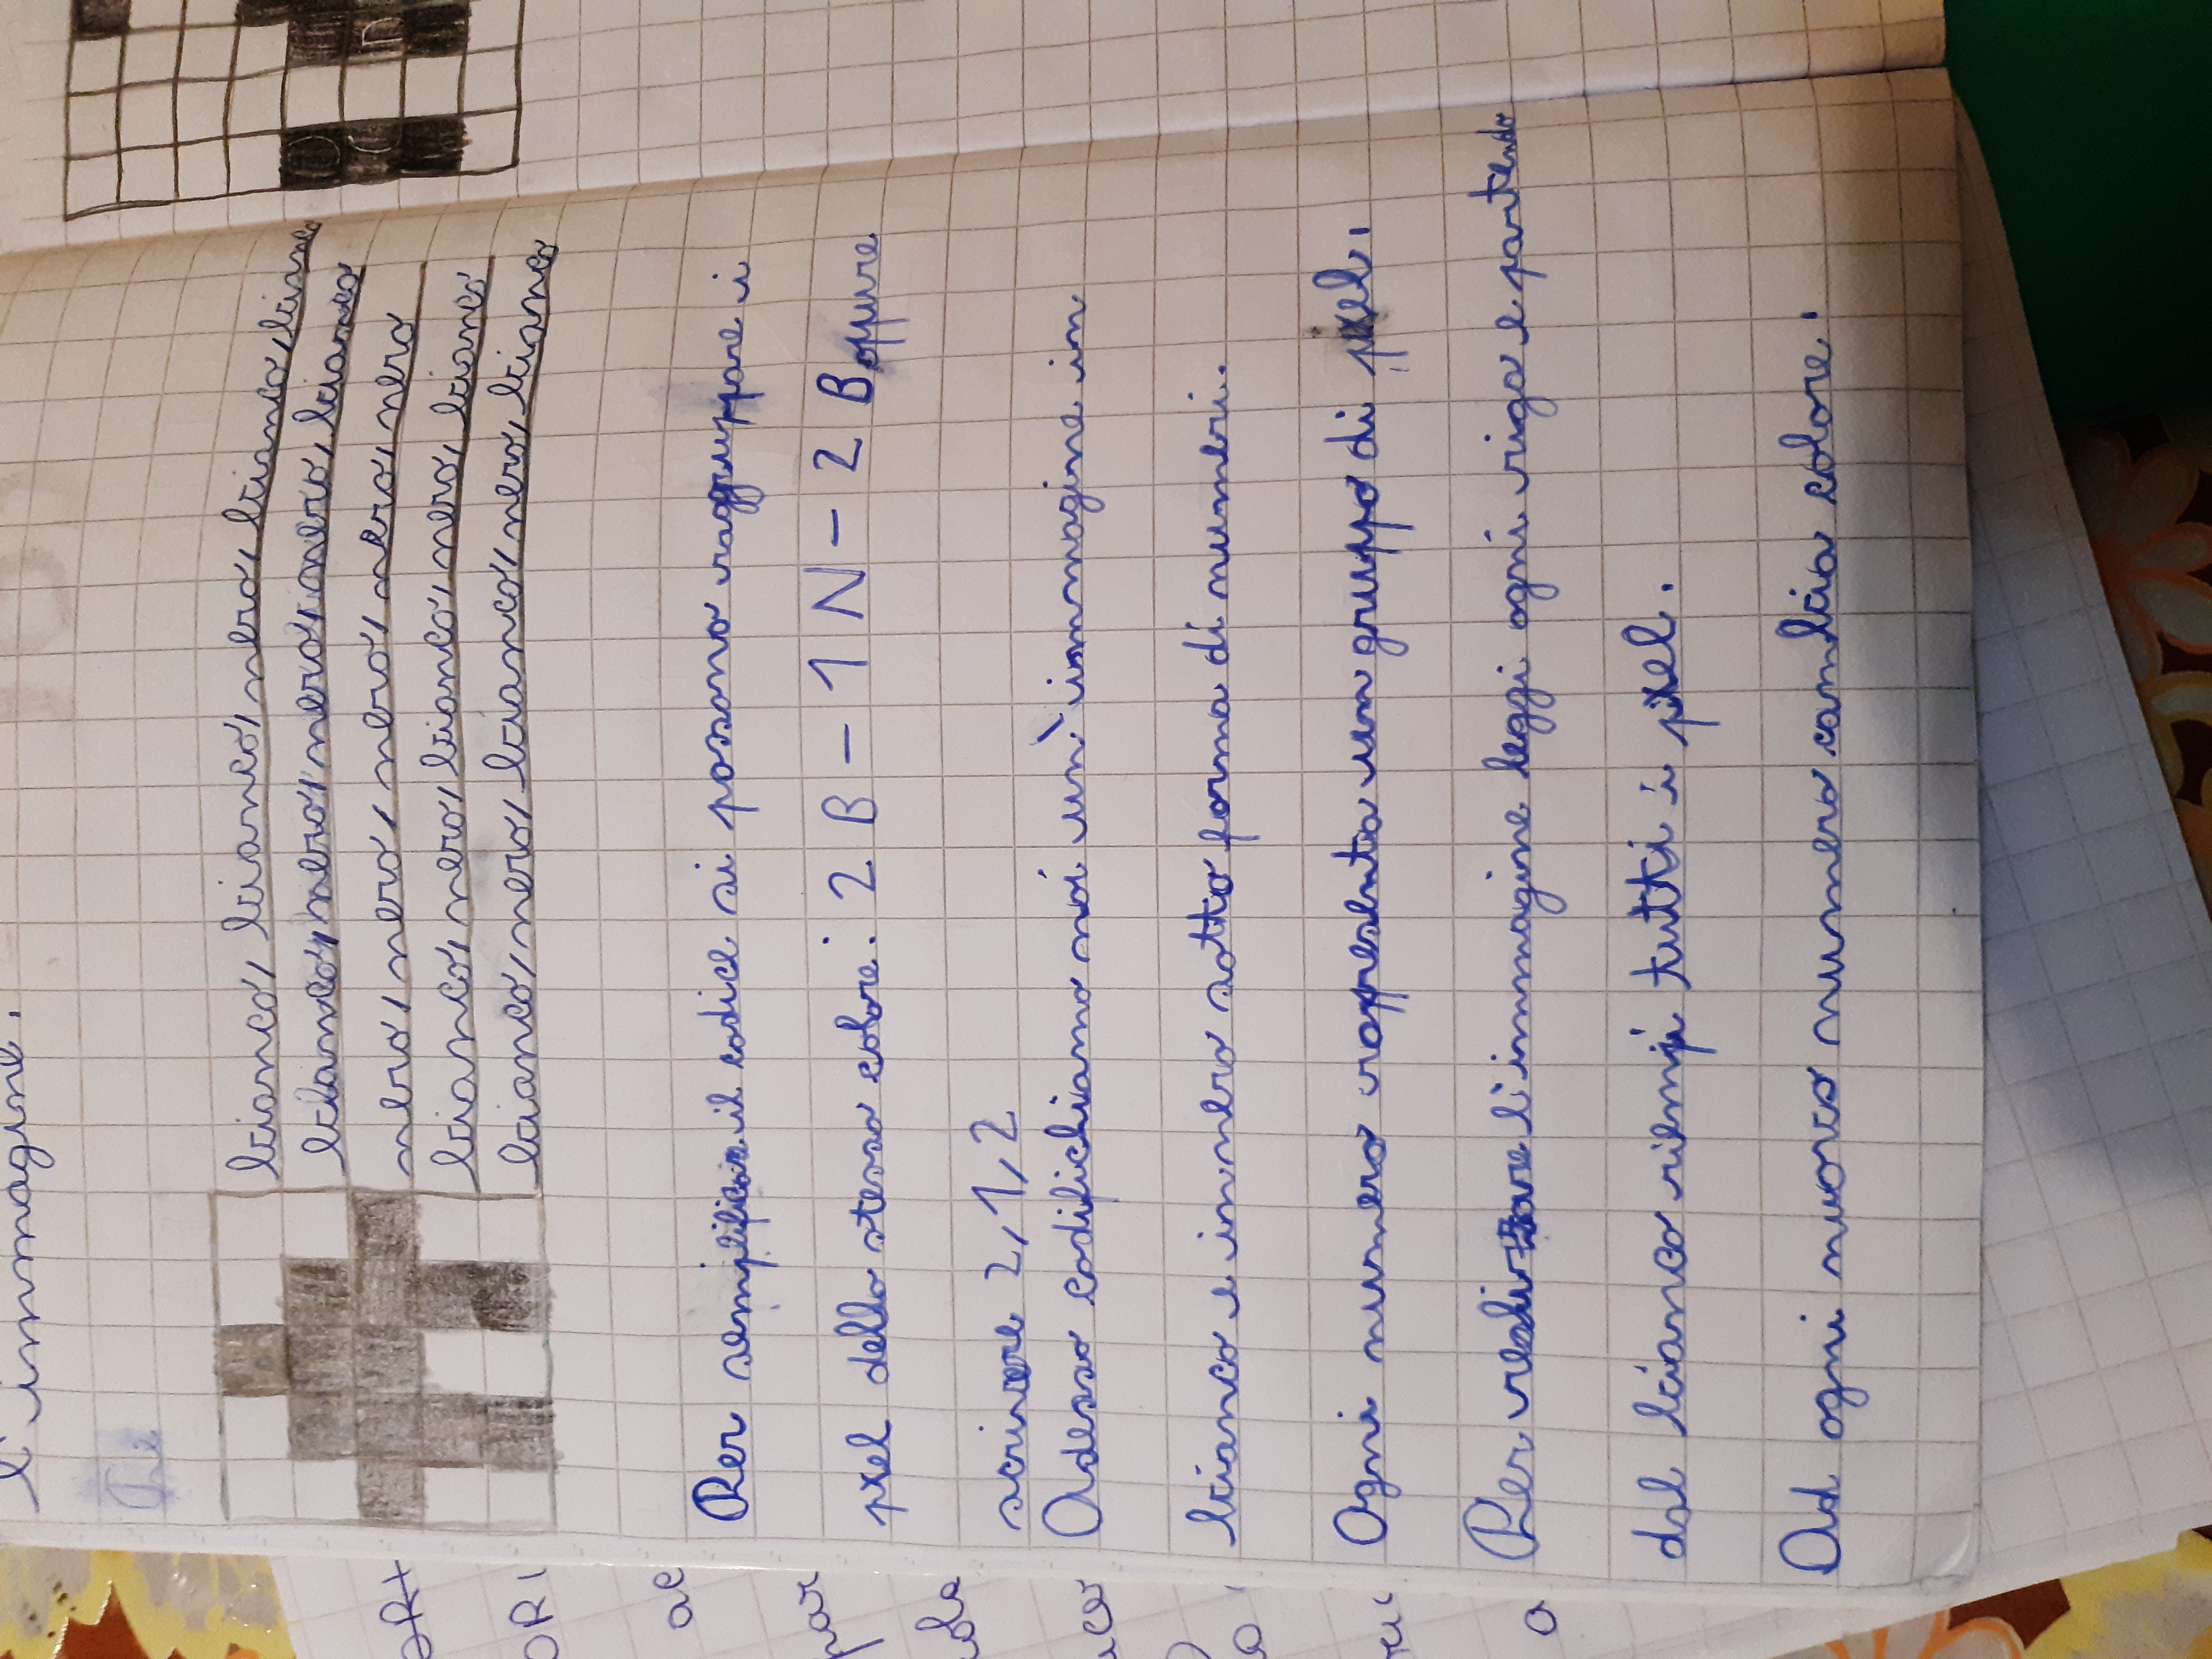 l'immagine.
bianco, bianco, nero, bianco, bianco
bianco, nero, nero, nero, bianco
nero, nero, nero, nero, nero
bianco, nero, bianco, nero, bianco
bianco, nero, bianco, nero, bianco
Per semplificare il codice si possono raggruppare i
pixel dello stesso colore: 2 B – 1 N – 2 B oppure
scrivere 2, 1, 2
Adesso codifichiamo noi un'immagine in
bianco e in nero sotto forma di numeri.
Ogni numero rappresenta un gruppo di pixel.
Per l'immagine leggi ogni riga e partendo
dal bianco riempi tutti i pixel.
Ad ogni nuovo numero cambia colore.